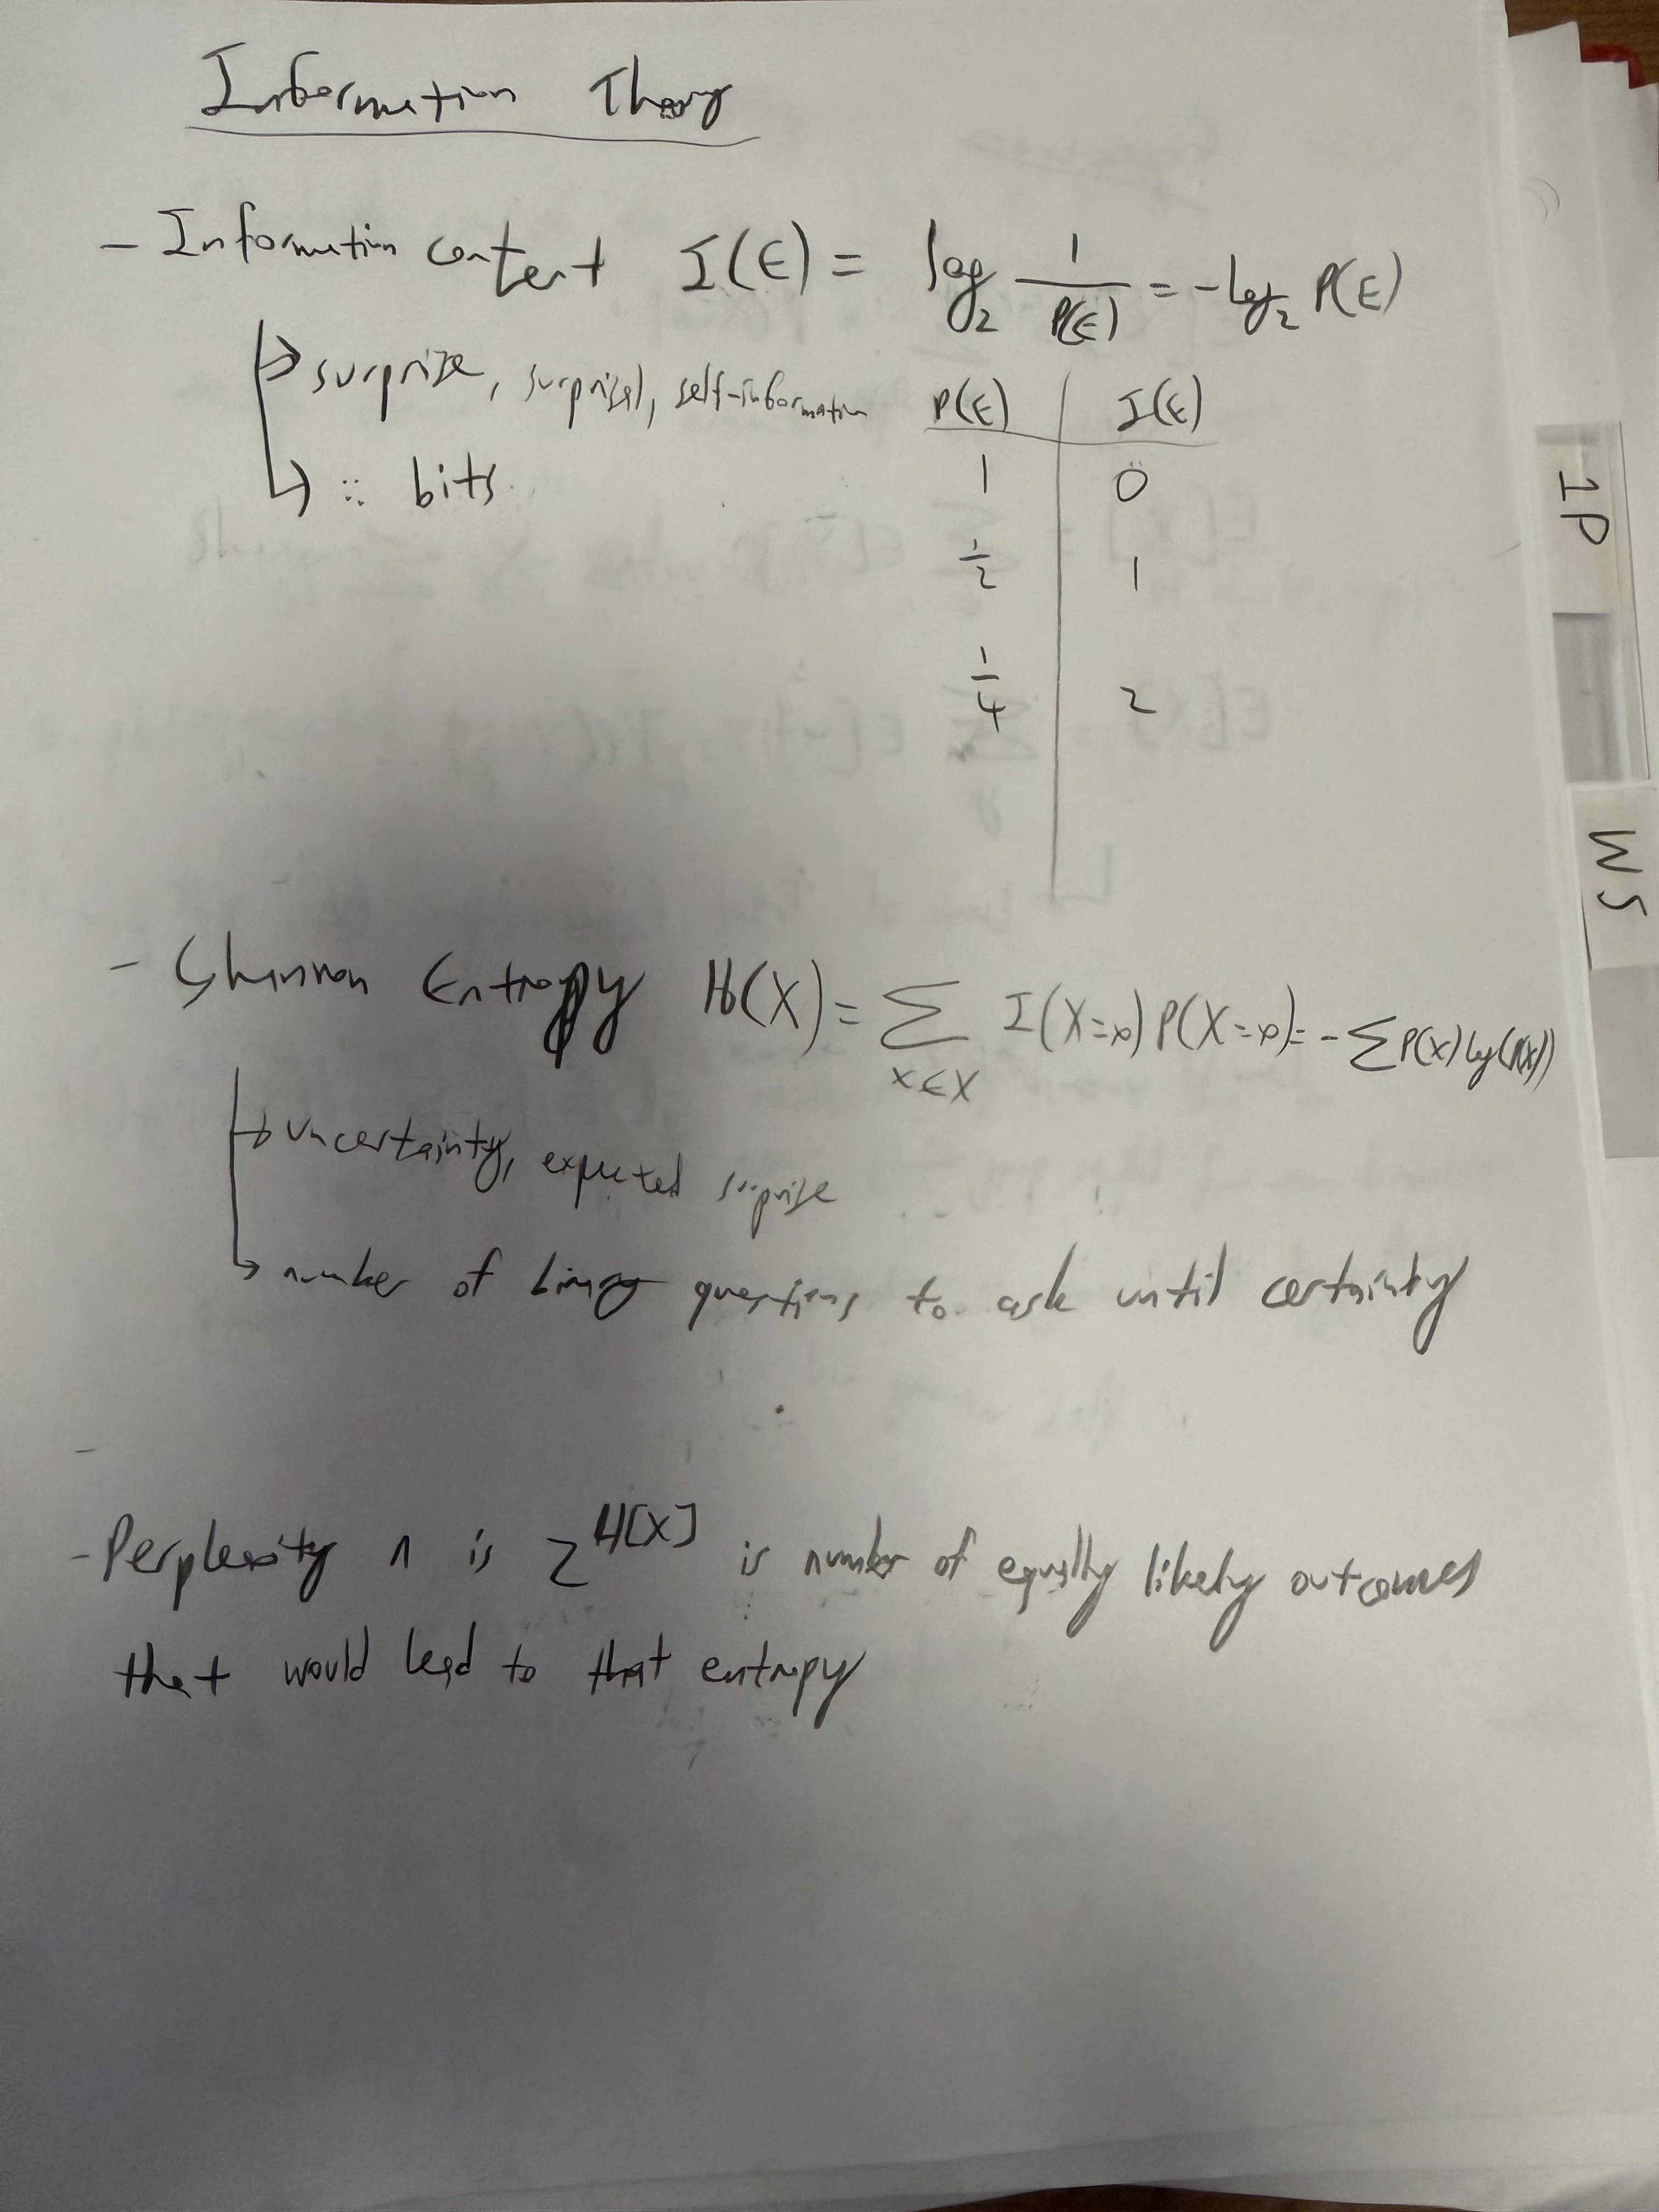 Information Theory
- Information content I(E) = log₂ 1/P(E) = -log₂ P(E)
↳ surprise, surprisal, self-information
↳ :: bits
P(E) | I(E)
1 | 0
1/2 | 1
1/4 | 2
- Shannon Entropy H(X) = Σ I(X=x) P(X=x) = - Σ P(X) log(P(X))
x∈X
↳ uncertainty, expected surprise
↳ number of binary questions to ask until certainty
-
- Perplexity n is 2^H[X] is number of equally likely outcomes
that would lead to that entropy
1P
WS